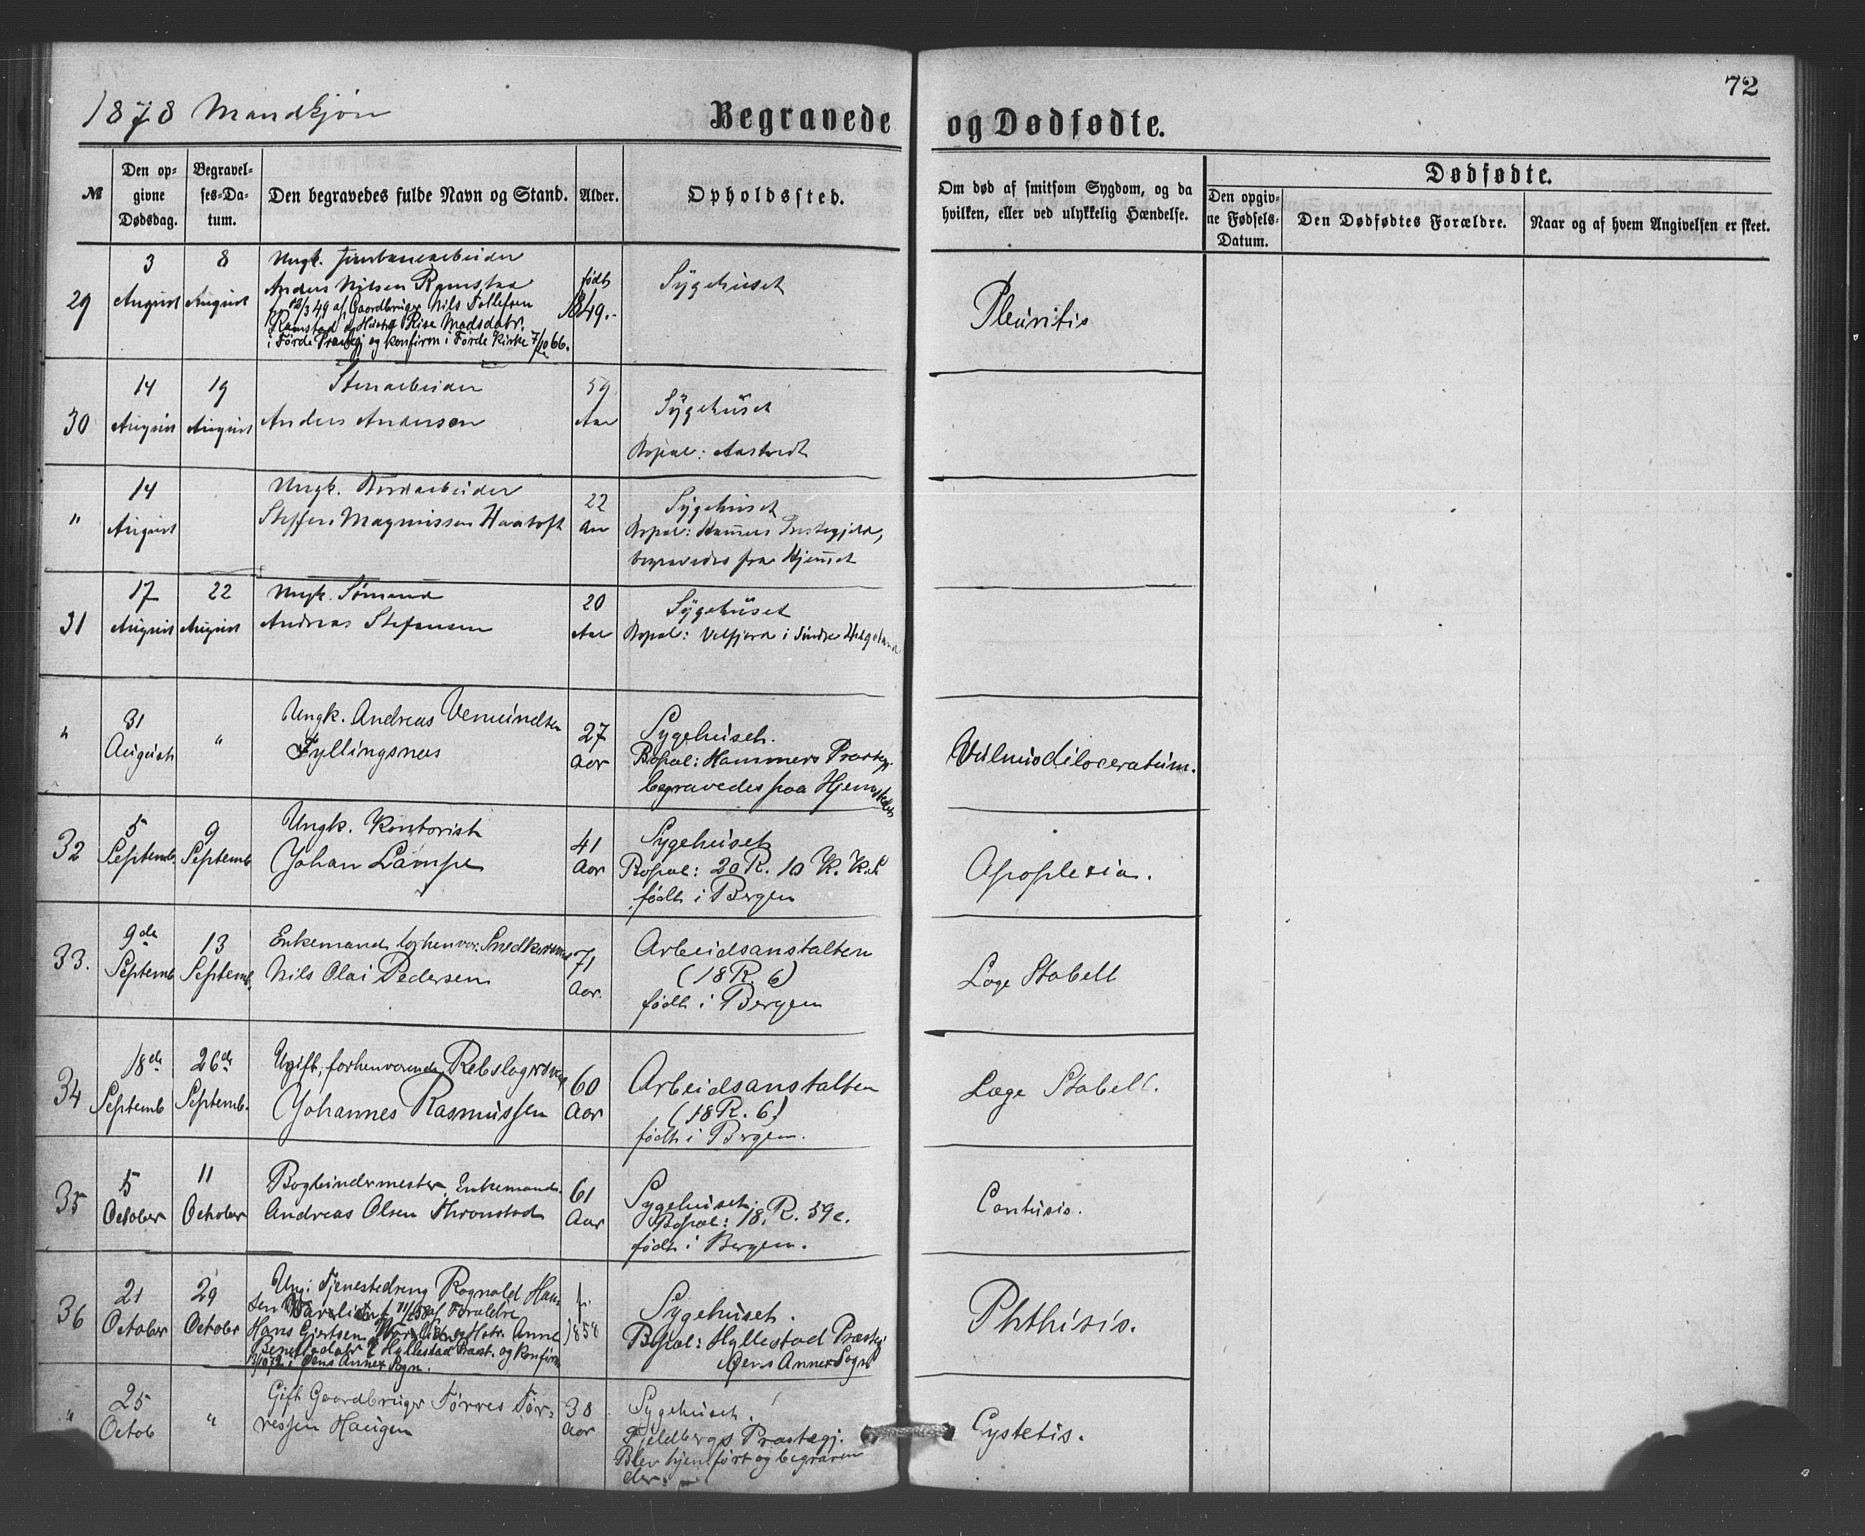 72
1878 Mandkjøn
Begravede og Dødfødte.
№
Den op-
givne
Dødsdag.
Begravel-
ses-Da-
tum.
Den begravedes fulde Navn og Stand.
Alder.
Opholdssted.
Om død af smitsom Sygdom, og da
hvilken, eller ved ulykkelig Hændelse.
Dødfødte.
Den opgiv-
ne Fødsels-
Datum.
Den Dødfødtes Forældre.
Naar og af hvem Angivelsen er skeet.
29
3
August
8
August
Ungk. Jernbanearbeider
Anders Nilsen Ramstad
f. 12/3 49 af Gaardbruger Nils Tollefsen
Ramstad og Hustru Rise Madsdatr.
i Førde Præstegj og konfirm i Førde Kirke 7/10 66.
født
1849.
Sygehuset
Pleuritis
30
14
August
19
August
Stenarbeider
Anders Andersen
59
Aar
Sygehuset
Bopæl: Aastvedt
"
14
August
Ungk. Jordarbeider
Steffen Magnussen
22
Aar
Sygehuset
Bopæl: Hammers Præstegjeld,
begravedes fra Hjemmet
31
17
August
22
August
Ungk. Sømand
Andreas Stefensen
20
Aar
Sygehuset
Bopæl: Velfjord i Søndre Helgeland
"
31
August
"
Ungk. Andreas Vemundsen
Fyllingsnæs
27
Aar
Sygehuset.
Bopæl: Hammers Præstegj.
begravedes paa Hjemstedet
32
5
Septemb.
9
Septemb
Ungk. Kontorist
Johan Lampe
41
Aar
Sygehuset
Bopæl: 20 R. 10 K. K.S
født i Bergen
Apoplexia.
33.
9de
Septemb
13
Septemb.
Enkemand forhenv. Snedkersvend
Nils Olai Pedersen
71
Aar.
Arbeidsanstalten
(18 R. 6)
født i Bergen
Læge Stabell
34
18de
Septemb
26de
Septemb.
Ugift, forhenværende Rebslagersvend
Johannes Rasmussen
60
Aar
Arbeidsanstalten
(18 R. 6.)
født i Bergen.
Læge Stabell.
35
5
October
11
October
Bogbindermester, Enkemand
Andreas Olsen Thronstad
61
Aar
Sygehuset.
Bopæl: 18. R. 59c.
født i Bergen.
Contusio.
36
21
October
29
Octobr
Ung. Tjenestedreng Rognald Han-
sen af Forældre
Hans Gjertsen og Hstr. Anne
Bendsdatr i Hyllestad Præst. og konfirm
i Øens Annex Sogn.
1858
Sygehuset.
Bopæl: Hyllestad Præstegj
Øens Annex Sogn
Phthisis.
"
25
Octob
"
Gift Gaardbruger Tørres Tør-
ressen Haugen
38
Aar
Sygehuset.
Fjeldbergs Præstegj.
Blev hjemført og begraven
der.
Cystetis.